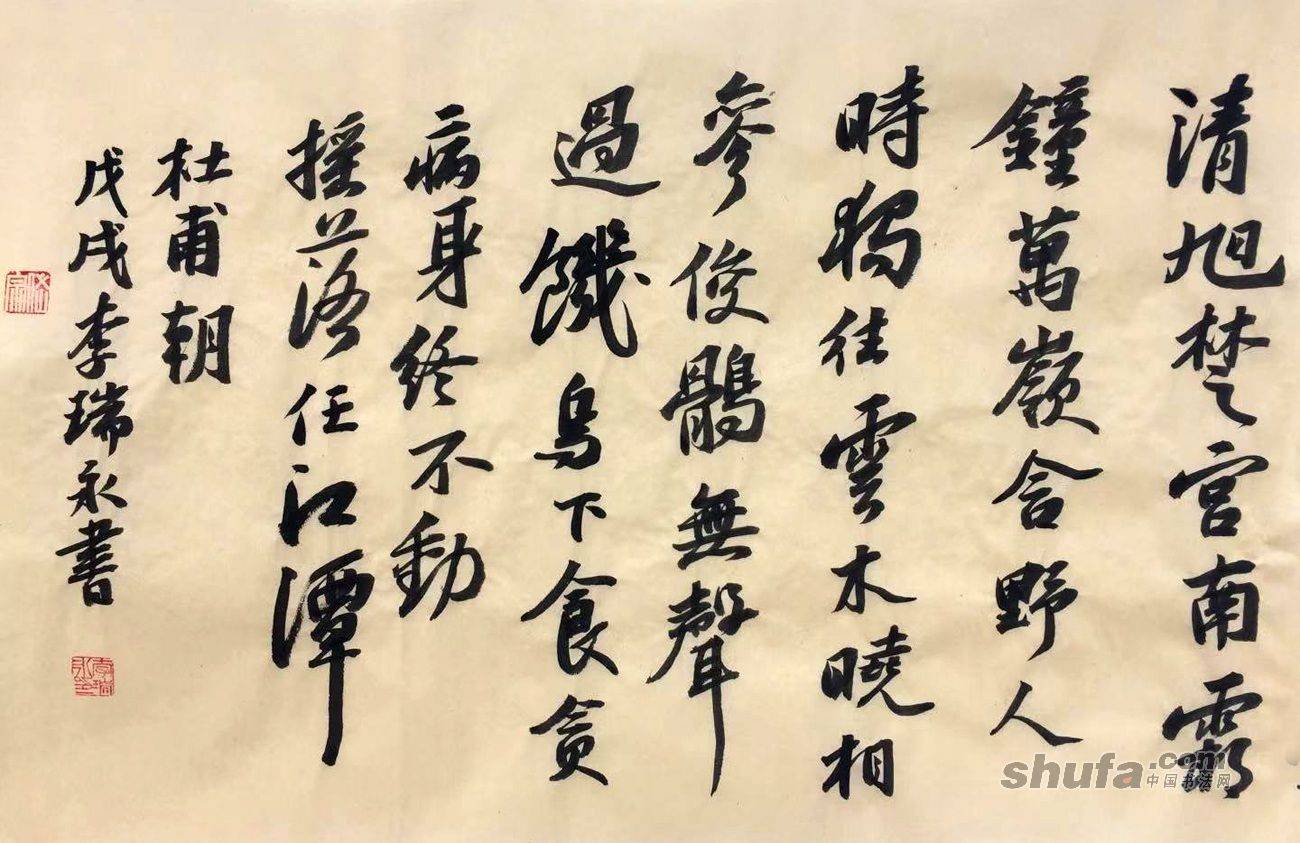 清旭楚宮南霜
鐘萬嶺含野人
時獨往雲木曉相
參俊鶻無聲
過饑烏下食貪
病身終不動
摇落任江潭
杜甫朝
戊戌李瑞永書
李瑞永印
shufa.com
中国书法网